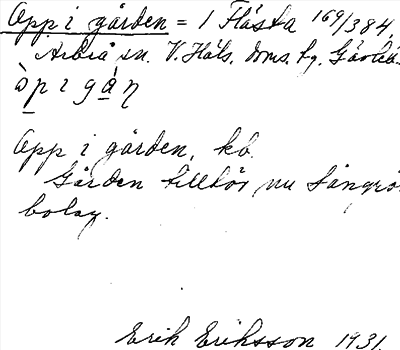 Opp i gården = 1 Flästa 169/384,
Arbrå sn. V. Häls. doms. hg. Gävleb.
òpigá̀ɳ
Opp i gården, kb.
Gården tillhör nu Ljusnefors
bolag.
Erik Eriksson 1931.